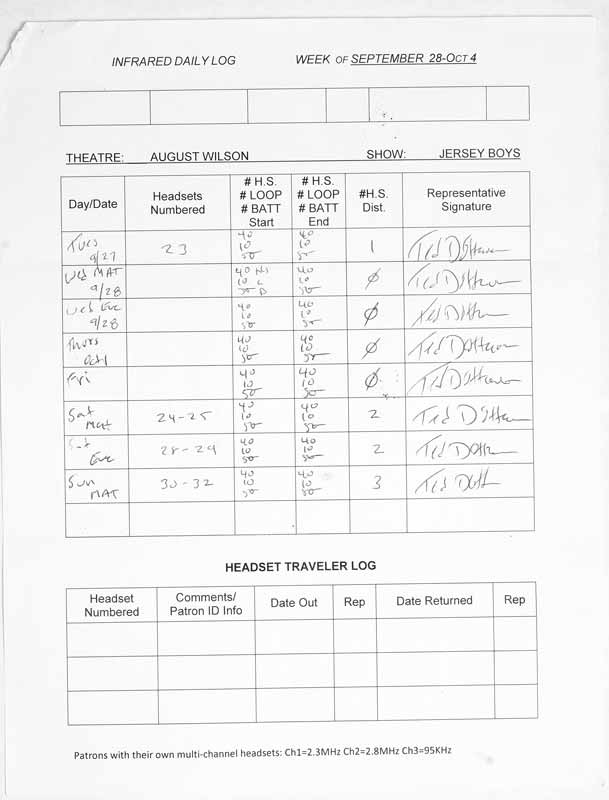 INFRARED DAILY LOG WEEK OF SEPTEMBER 28-OCT 4
THEATRE: AUGUST WILSON SHOW: JERSEY BOYS
Day/Date Headsets Numbered # H.S. # LOOP # BATT Start # H.S. # LOOP # BATT End #H.S. Dist. Representative Signature
Tues 9/27 23 40 10 50 40 10 50 1
Wed MAT 9/28 40 HS 10 L 50 B 40 10 50 Ø
Wed Eve 9/28 40 10 50 40 10 50 Ø
Thurs Oct 1 40 10 50 40 10 50 Ø
Fri 40 10 50 40 10 50 Ø
Sat Mat 24-25 40 10 50 40 10 50 2
Sat Eve 28-29 40 10 50 40 10 50 2
Sun MAT 30-32 40 10 50 40 10 50 3
HEADSET TRAVELER LOG
Headset Numbered Comments/ Patron ID Info Date Out Rep Date Returned Rep
Patrons with their own multi-channel headsets: Ch1=2.3MHz Ch2=2.8MHz Ch3=95KHz